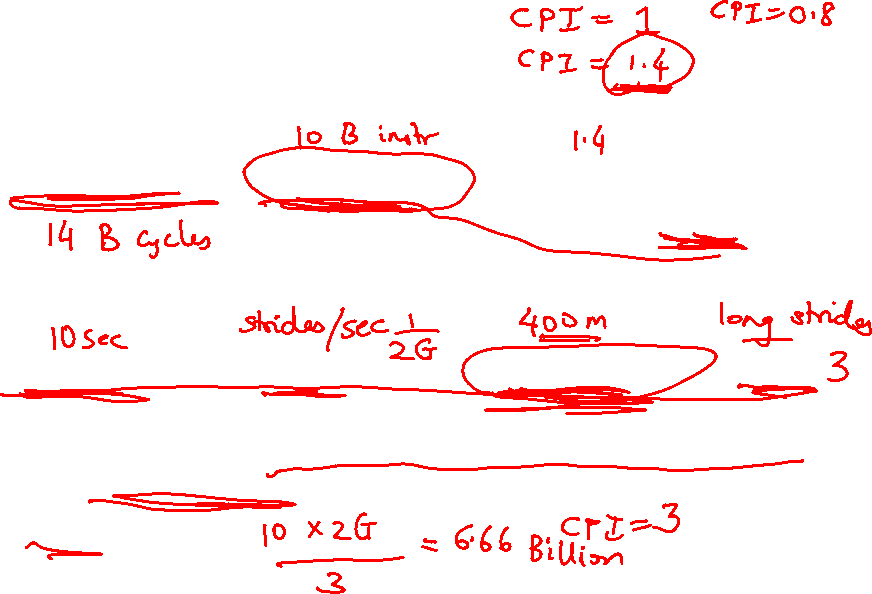 CPI = 1 CPI=0.8
CPI = 1.4
10 B instr 1.4
14 B cycles
10 sec strides/sec 1/2G 400m long strides
3
10 x 2G / 3 = 6.66 Billion CPI=3